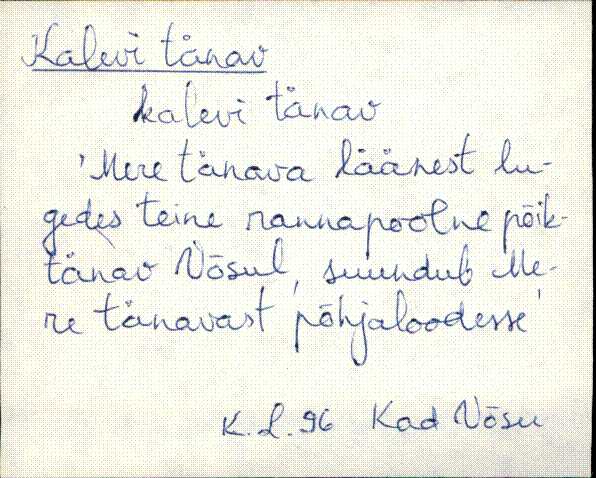 Kalevi tänav
kalevi tänav
'Mere tänava läänest lu-
gedes teine rannapoolne põik-
tänav Võsul, suundub Me-
re tänavast põhjaloodesse'
K.L.96 Kad Võsu